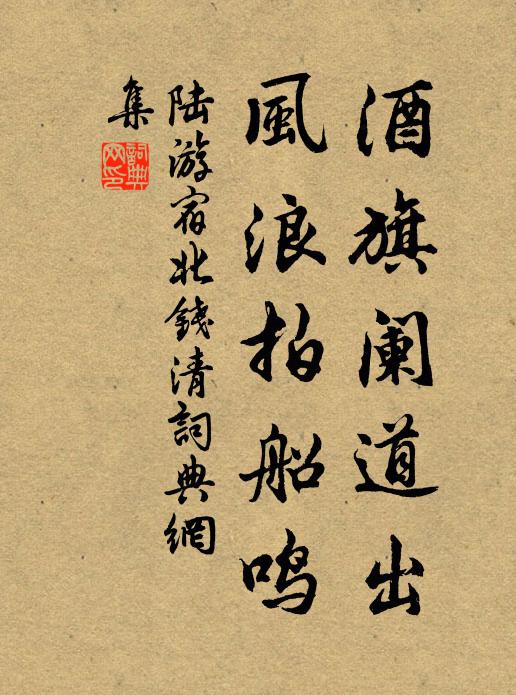 酒旗阑道出
風浪拍船鸣
陆游宿北錢清詞典網
集
詞典網印